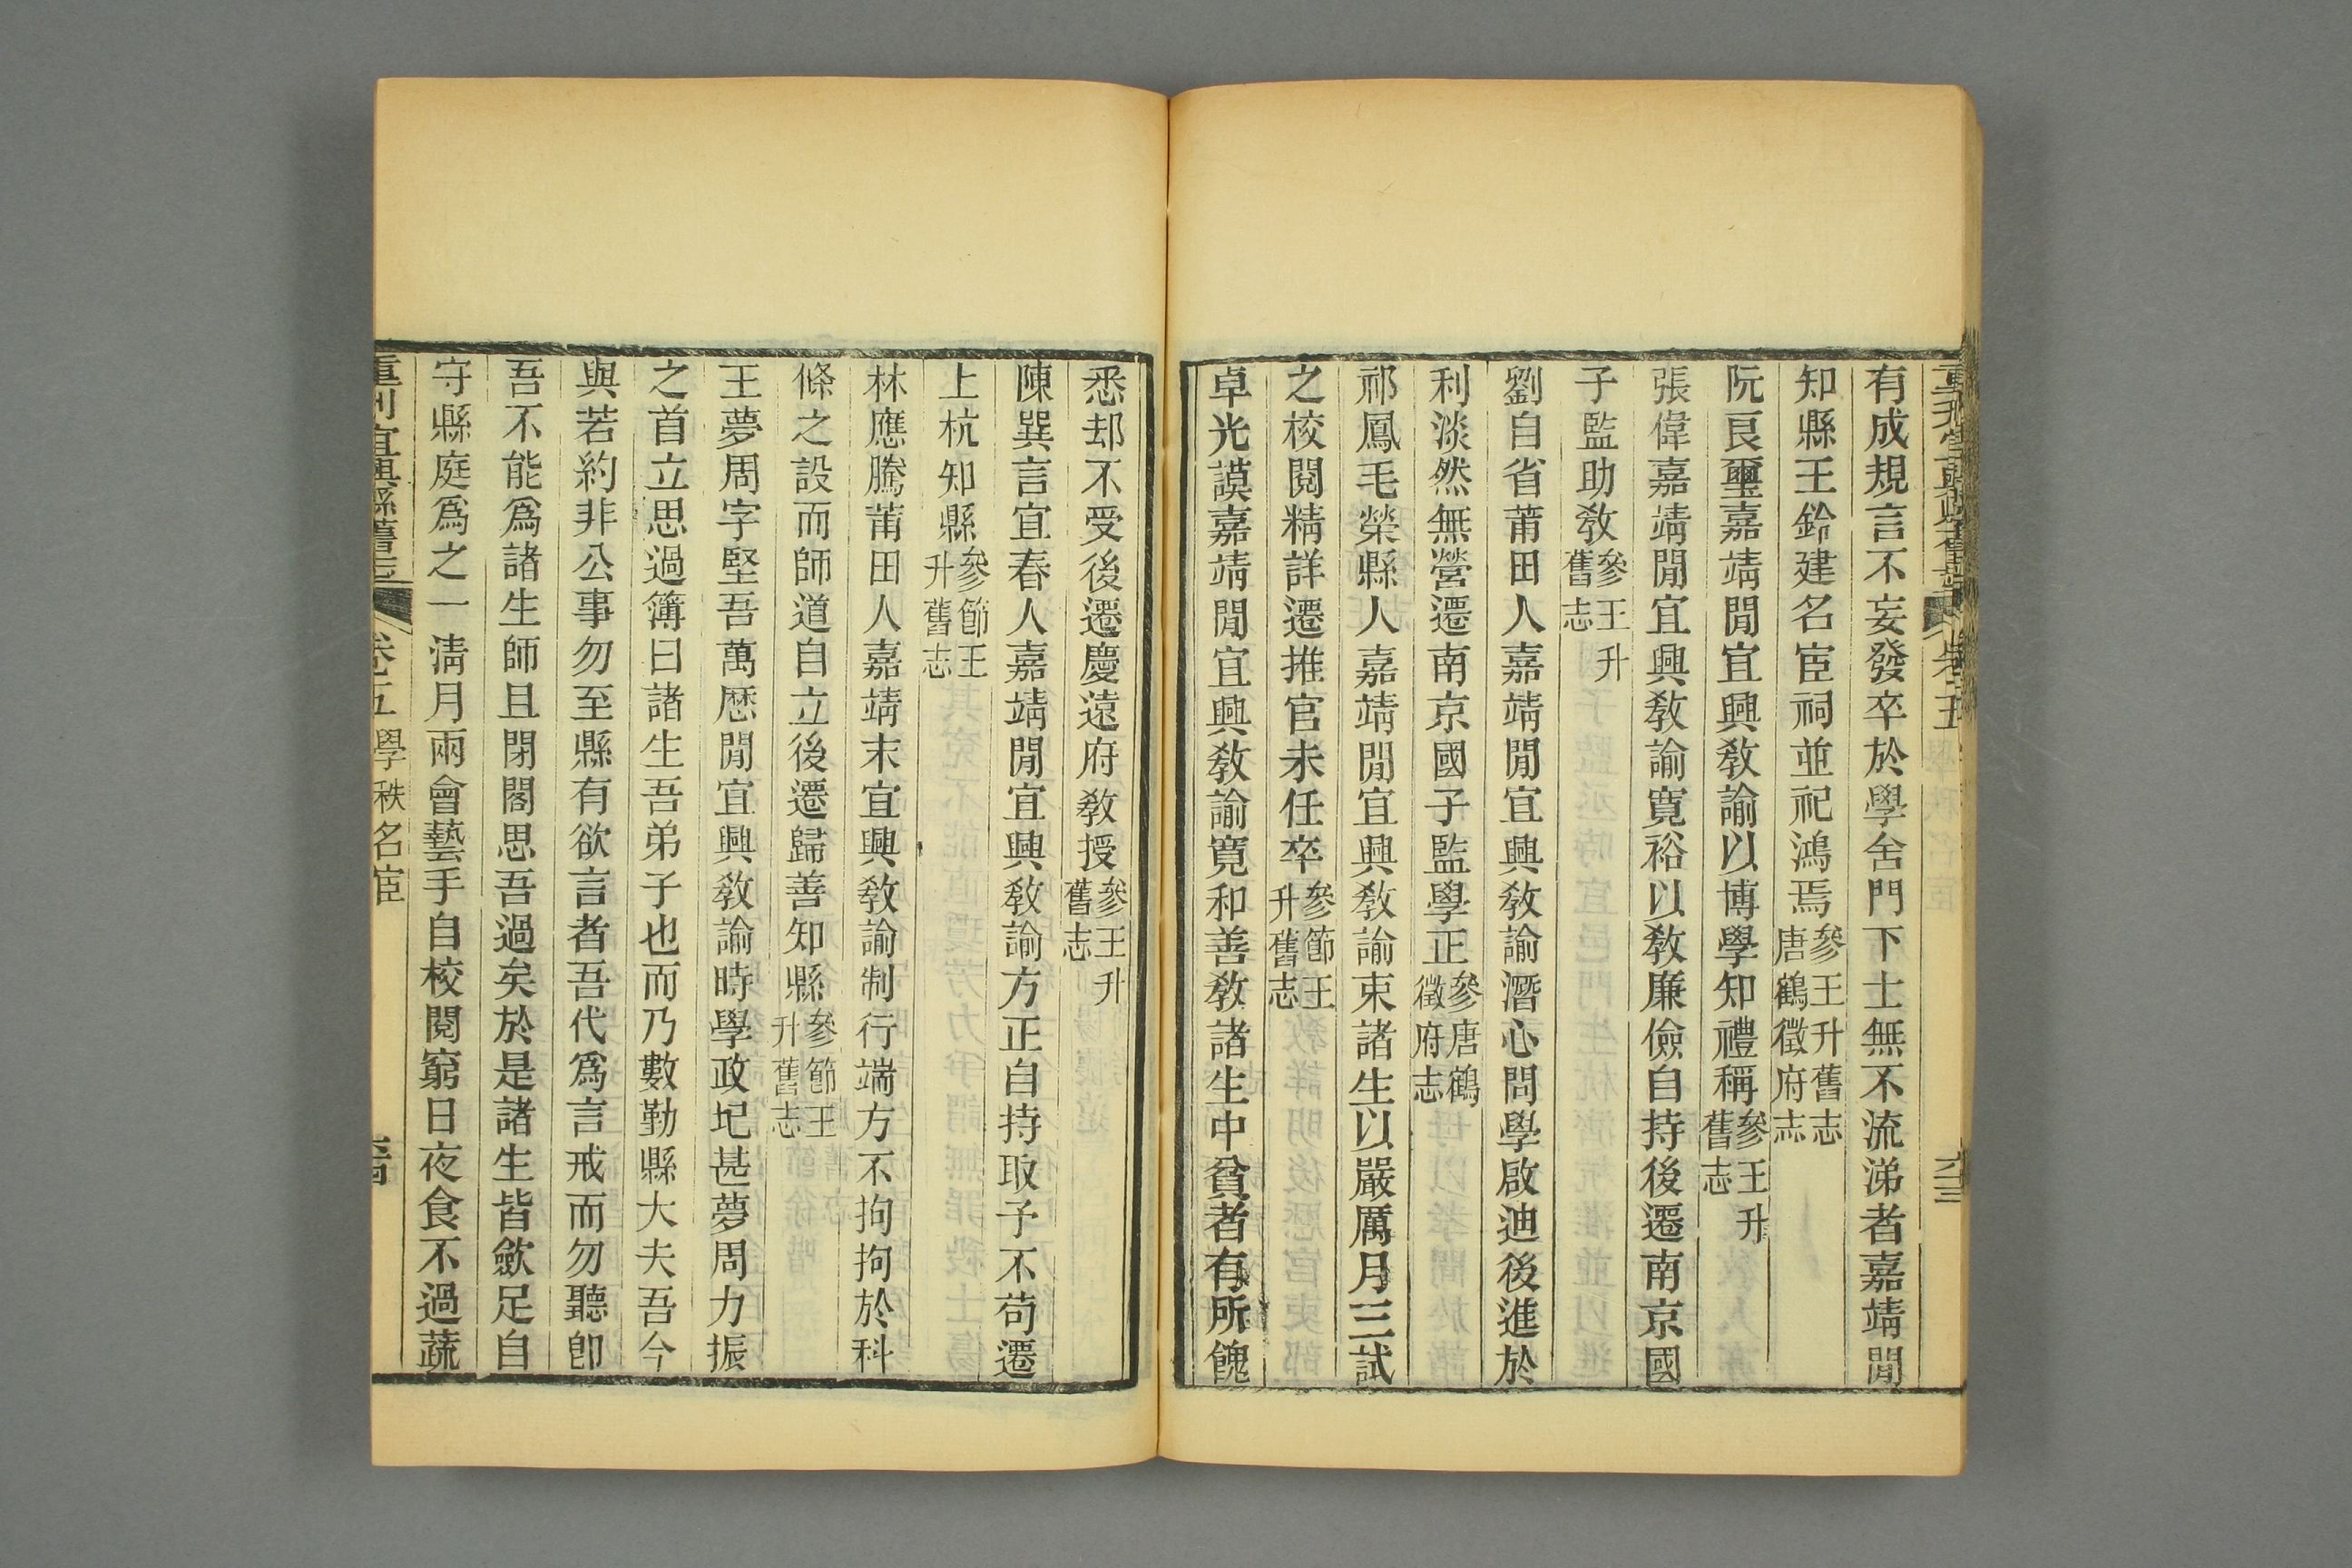 重刊宜興縣舊志 卷五 六三
有成規言不妄發卒於學舍門下士無不流涕者嘉靖閒
知縣王鈴建名宦祠並祀鴻焉參王升舊志唐鶴徵府志
阮良璽嘉靖閒宜興敎諭以博學知禮稱參王升舊志
張偉嘉靖閒宜興敎諭寬裕以敎廉儉自持後遷南京國
子監助敎參王升舊志
劉自省莆田人嘉靖閒宜興敎諭潛心問學啟迪後進於
利淡然無營遷南京國子監學正參唐鶴徵府志
祁鳳毛榮縣人嘉靖閒宜興敎諭束諸生以嚴厲月三試
之校閱精詳遷推官未任卒參節王升舊志
卓光謨嘉靖閒宜興敎諭寬和善敎諸生中貧者有所餽
悉却不受後遷慶遠府敎授參王升舊志
陳巽言宜春人嘉靖閒宜興敎諭方正自持取予不苟遷
上杭知縣參節王升舊志
林應騰莆田人嘉靖末宜興敎諭制行端方不拘拘於科
條之設而師道自立後遷歸善知縣參節王升舊志
王夢周字堅吾萬厯閒宜興敎諭時學政圮甚夢周力振
之首立思過簿曰諸生吾弟子也而乃數勤縣大夫吾今
與若約非公事勿至縣有欲言者吾代爲言戒而勿聽卽
吾不能爲諸生師且閉閣思吾過矣於是諸生皆歛足自
守縣庭爲之一淸月兩會藝手自校閱窮日夜食不過蔬
重刊宜興縣舊志 卷五 學秩名宦 六四